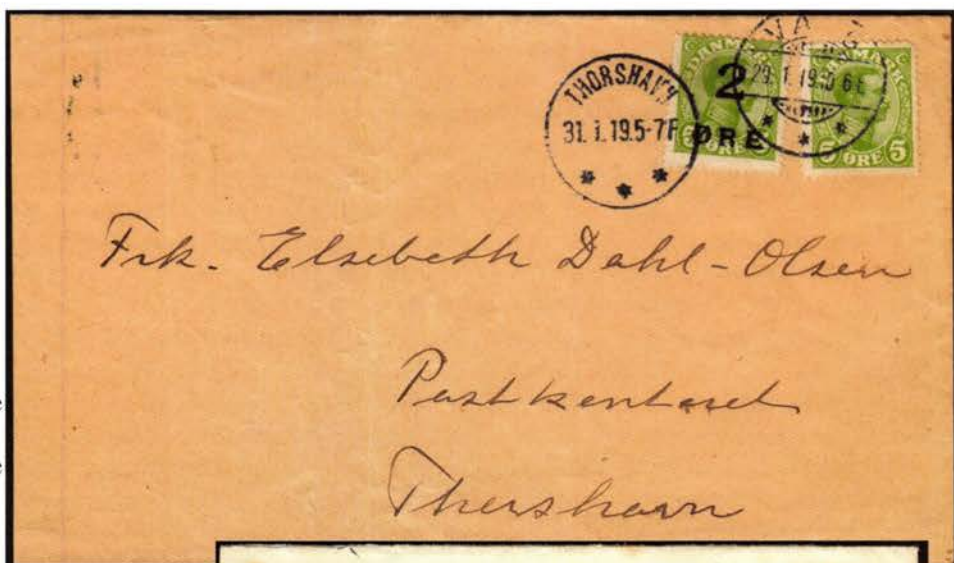 THORSHAVN
31.1.19.5-7F
DANMARK
2
5 ØRE 5
ØRE
29.1.19.10-6E
DANMARK
5 ØRE 5
Frk. Elsebeth Dahl-Olsen
Postkontoret
Thorshavn